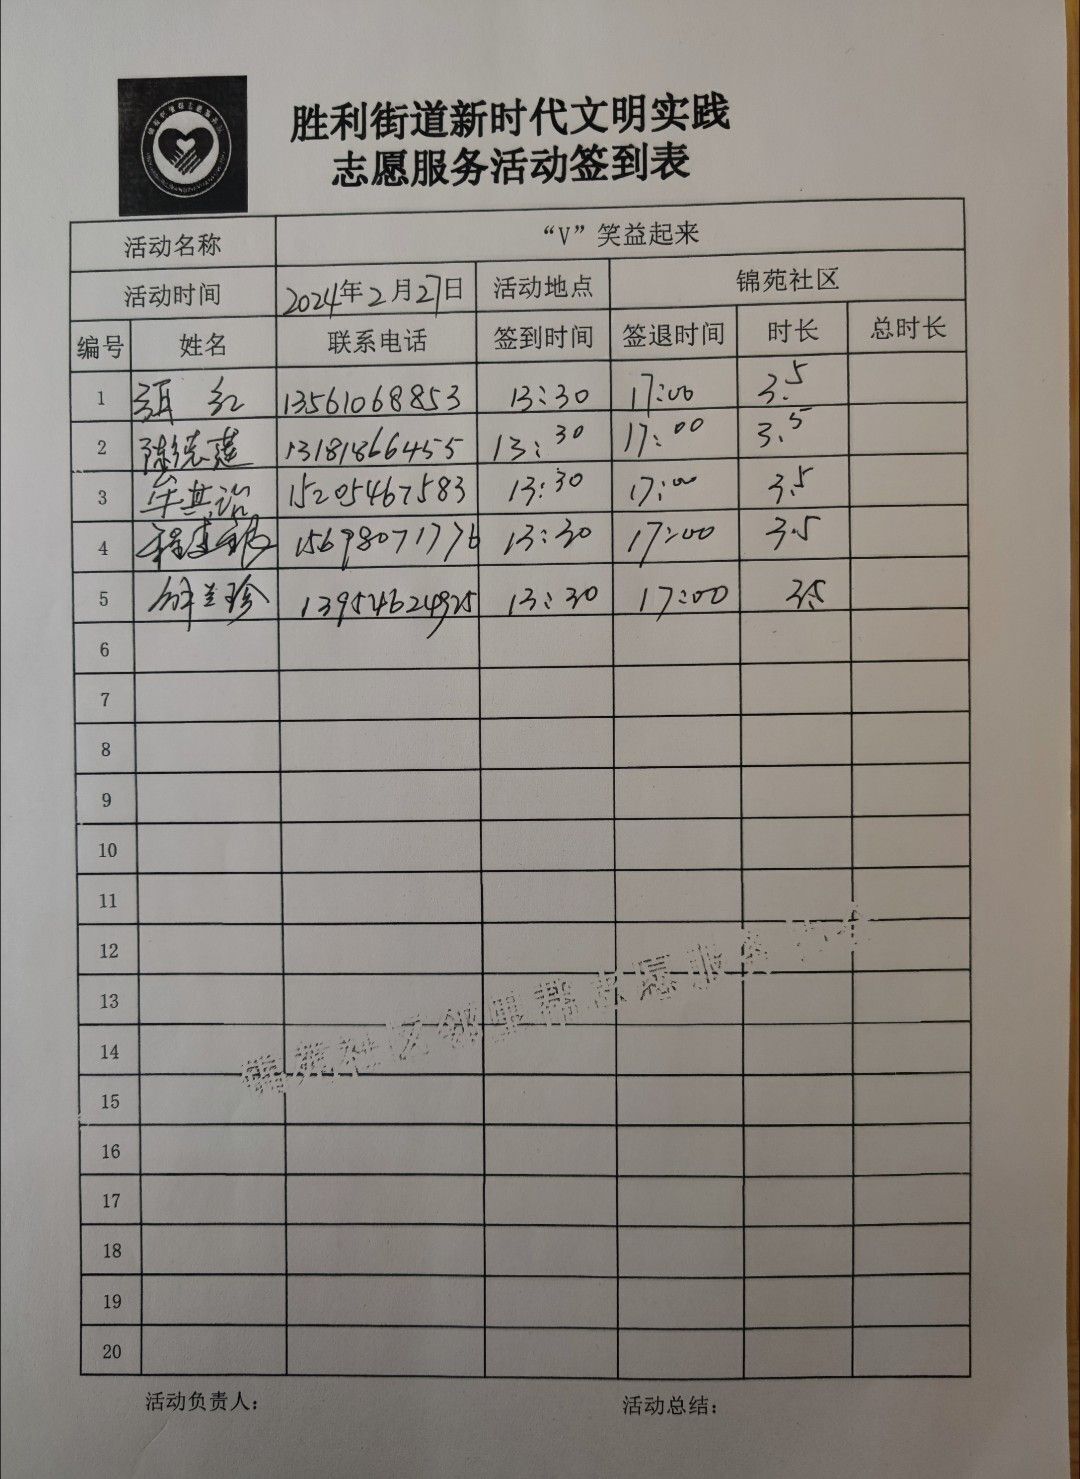 胜利街道新时代文明实践
志愿服务活动签到表
活动名称 “V”笑益起来
活动时间 2024年2月27日 活动地点 锦苑社区
编号 姓名 联系电话 签到时间 签退时间 时长 总时长
1 红 13561068853 13:30 17:00 3.5
2 陈 13181866455 13:30 17:00 3.5
3 牟其 15205467583 13:30 17:00 3.5
4 15698071776 13:30 17:00 3.5
5 兰珍 13954624925 13:30 17:00 3.5
6
7
8
9
10
11
12
13
锦苑社区邻里帮志愿服务
14
15
16
17
18
19
20
活动负责人: 活动总结: